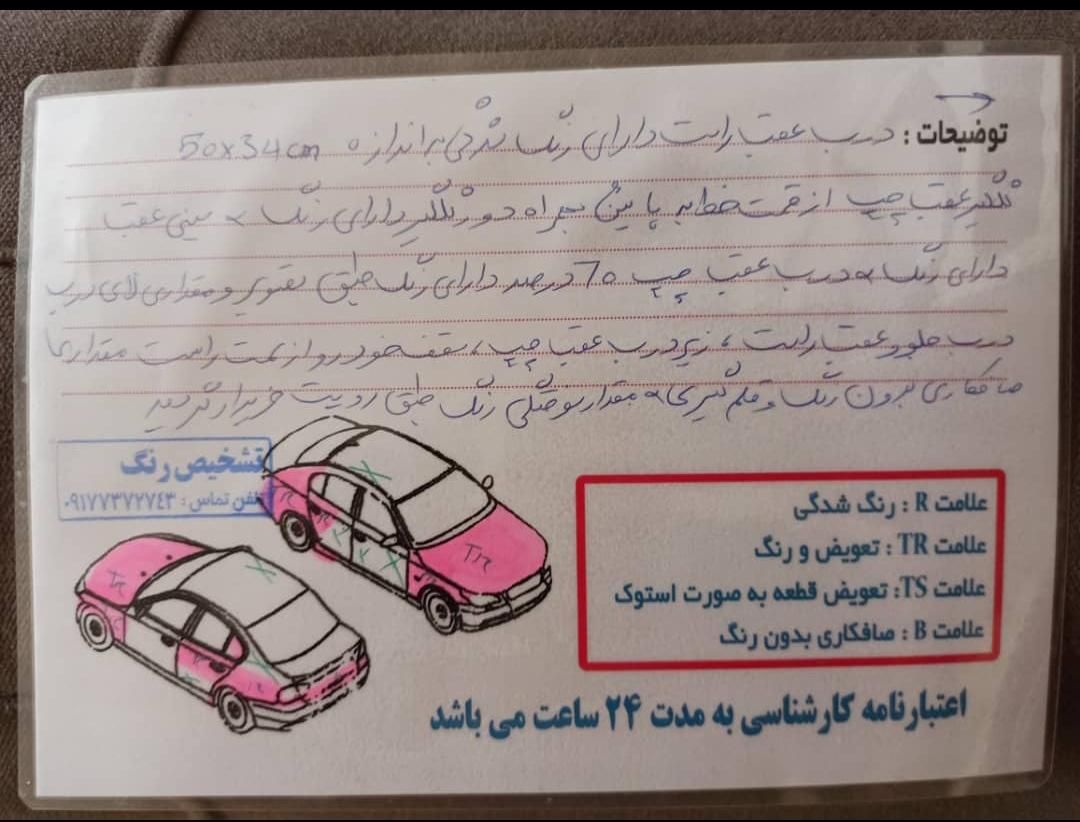 توضیحات : درب عقب راست دارای رنگ شدگی به اندازه 50x34 cm
گلگیر عقب چپ از قسمت خط به پایین بهمراه دو گلگیر دارای رنگ سینی عقب
دارای رنگ درب عقب چپ 70 درصد دارای رنگ طبق تصویر و مقداری لای درب
درب جلو و عقب راست ، زیر درب عقب چپ، سقف خودرو از سمت راست مقدار
صافکاری بدون رنگ و قلم گیری مقدار رنگ طبق رویت خریدار گردید
تشخیص رنگ
تلفن تماس : ۰۹۱۷۷۳۷۲۷۴۳
علامت R : رنگ شدگی
علامت TR : تعویض و رنگ
علامت TS: تعویض قطعه به صورت استوک
علامت B : صافکاری بدون رنگ
TR
TR
اعتبارنامه کارشناسی به مدت ۲۴ ساعت می باشد